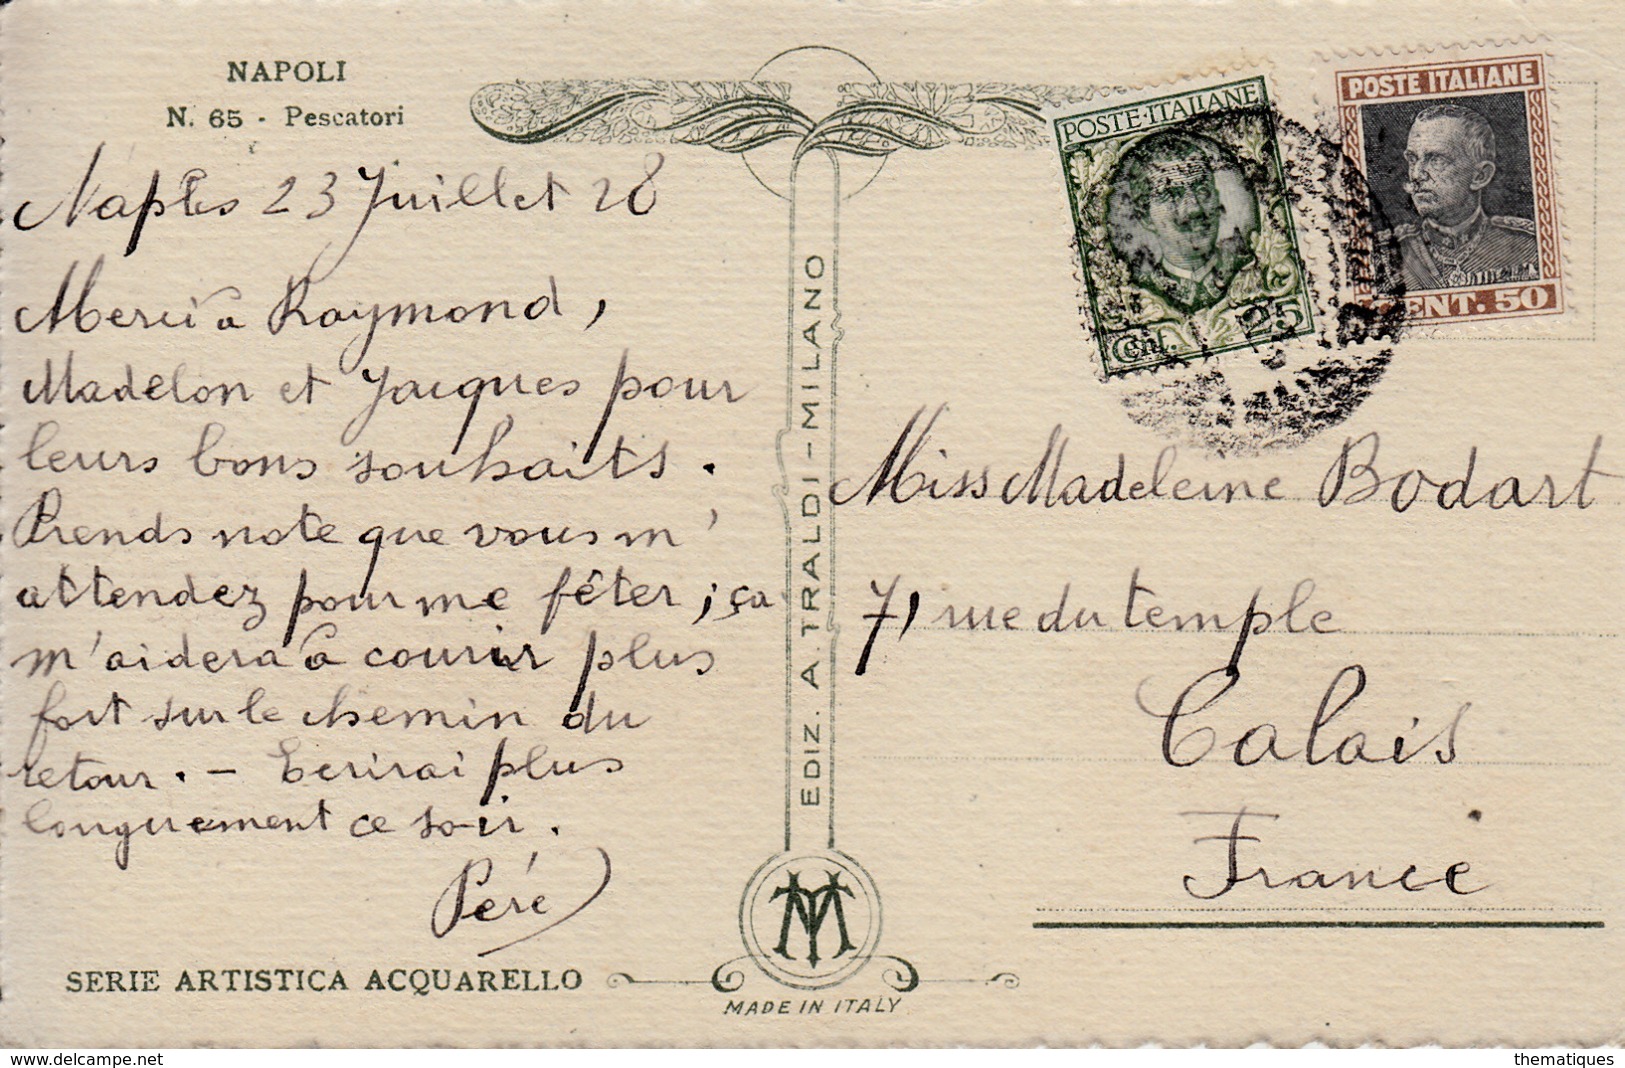 NAPOLI
N. 65 - Pescatori
Naples 23 Juillet 28
Merci à Raymond,
Madelon et Jacques pour
leurs bons souhaits.
Prends note que vous m'
attendez pour me fêter ; ça
m'aidera à courir plus
fort sur le chemin du
retour. - Ecrirai plus
longuement ce soir.
Péré
SERIE ARTISTICA ACQUARELLO
EDIZ. A. TRALDI - MILANO
MADE IN ITALY
POSTE·ITALIANE
25
Cent.
POSTE ITALIANE
CENT. 50
Miss Madeleine Bodart
71 rue du temple
Calais
France
www.delcampe.net
thematiques